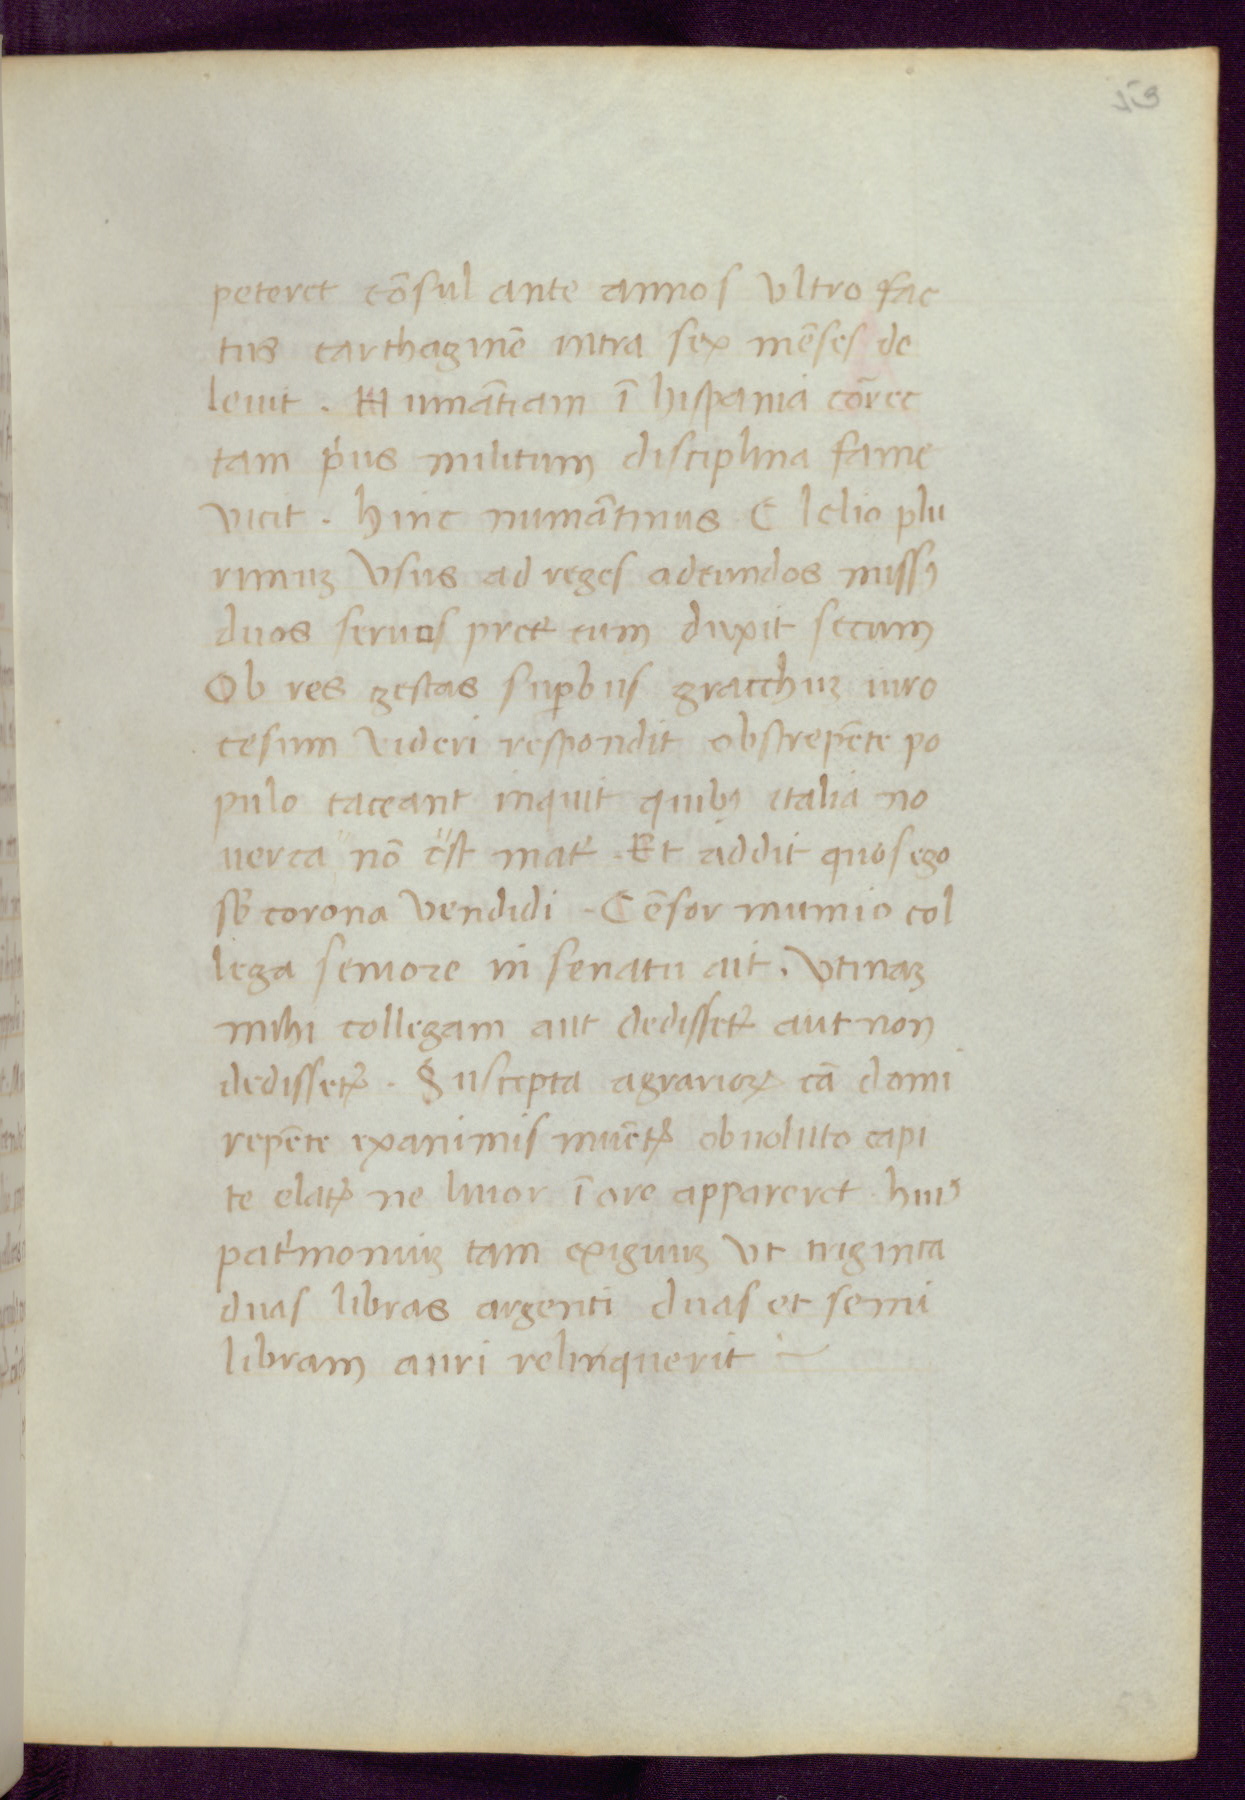 53
peteret cōsul ante annos vltro fac
tus carthaginē intra sex mēses de
leuit . Numātiam ī hispania cōrec
tam pius militum disciplina fame
vicit . hinc numātinus C lelio plu
rimuꝫ vsus ad reges adeundos missꝰ
duos seruos pret̉ eum duxit secum
Ob res gestas suꝑbus gracchuꝫ iure
cesum videri respondit obstrepēte po
pulo taceant inquit quibꝰ italia no
uerca nō est mat̉ . Et addit quos ego
sb̄ corona vendidi . Cēsor mumio col
lega seniore in senatu ait . vtinaꝫ
mihi collegam aut dedisset̉ aut non
dedisset̉ . Suscepta agrarioꝝ cā domi
repēte exanimis inuēt̉ obuoluto capi
te elat̉ ne liuor ī ore appareret huiꝰ
pat̉imoniuꝫ tam exiguuꝫ vt triginta
duas libras argenti duas et semi
libram auri relinquerit